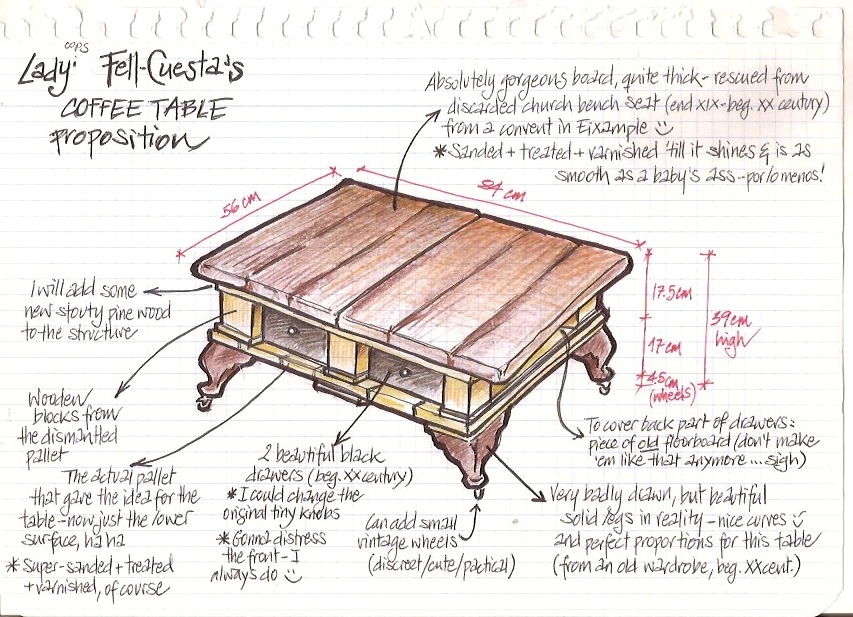 oops
Lady Fell-Cuesta's
COFFEE TABLE
proposition
Absolutely gorgeous board, quite thick - rescued from
discarded church bench seat (end XIX-beg. XX century)
from a convent in Eixample
* Sanded + treated + varnished 'till it shines & is as
smooth as a baby's ass -- por lo menos!
56 cm
94 cm
17.5cm
17cm
4.5cm
(wheels)
39cm
high
I will add some
new stouty pine wood
to the structure
Wooden
blocks from
the dismantled
pallet
The actual pallet
that gave the idea for the
table - now just the lower
surface, ha ha
* Super-sanded + treated
+ varnished, of course
2 beautiful black
drawers (beg. XX century)
* I could change the
original tiny knobs
* Gonna distress
the front - I
always do
Can add small
vintage wheels
(discreet/cute/pactical)
To cover back part of drawers:
piece of old floorboard (don't make
'em like that anymore ... sigh)
Very badly drawn, but beautiful
solid legs in reality - nice curves
and perfect proportions for this table
(from an old wardrobe, beg. XX cent.)